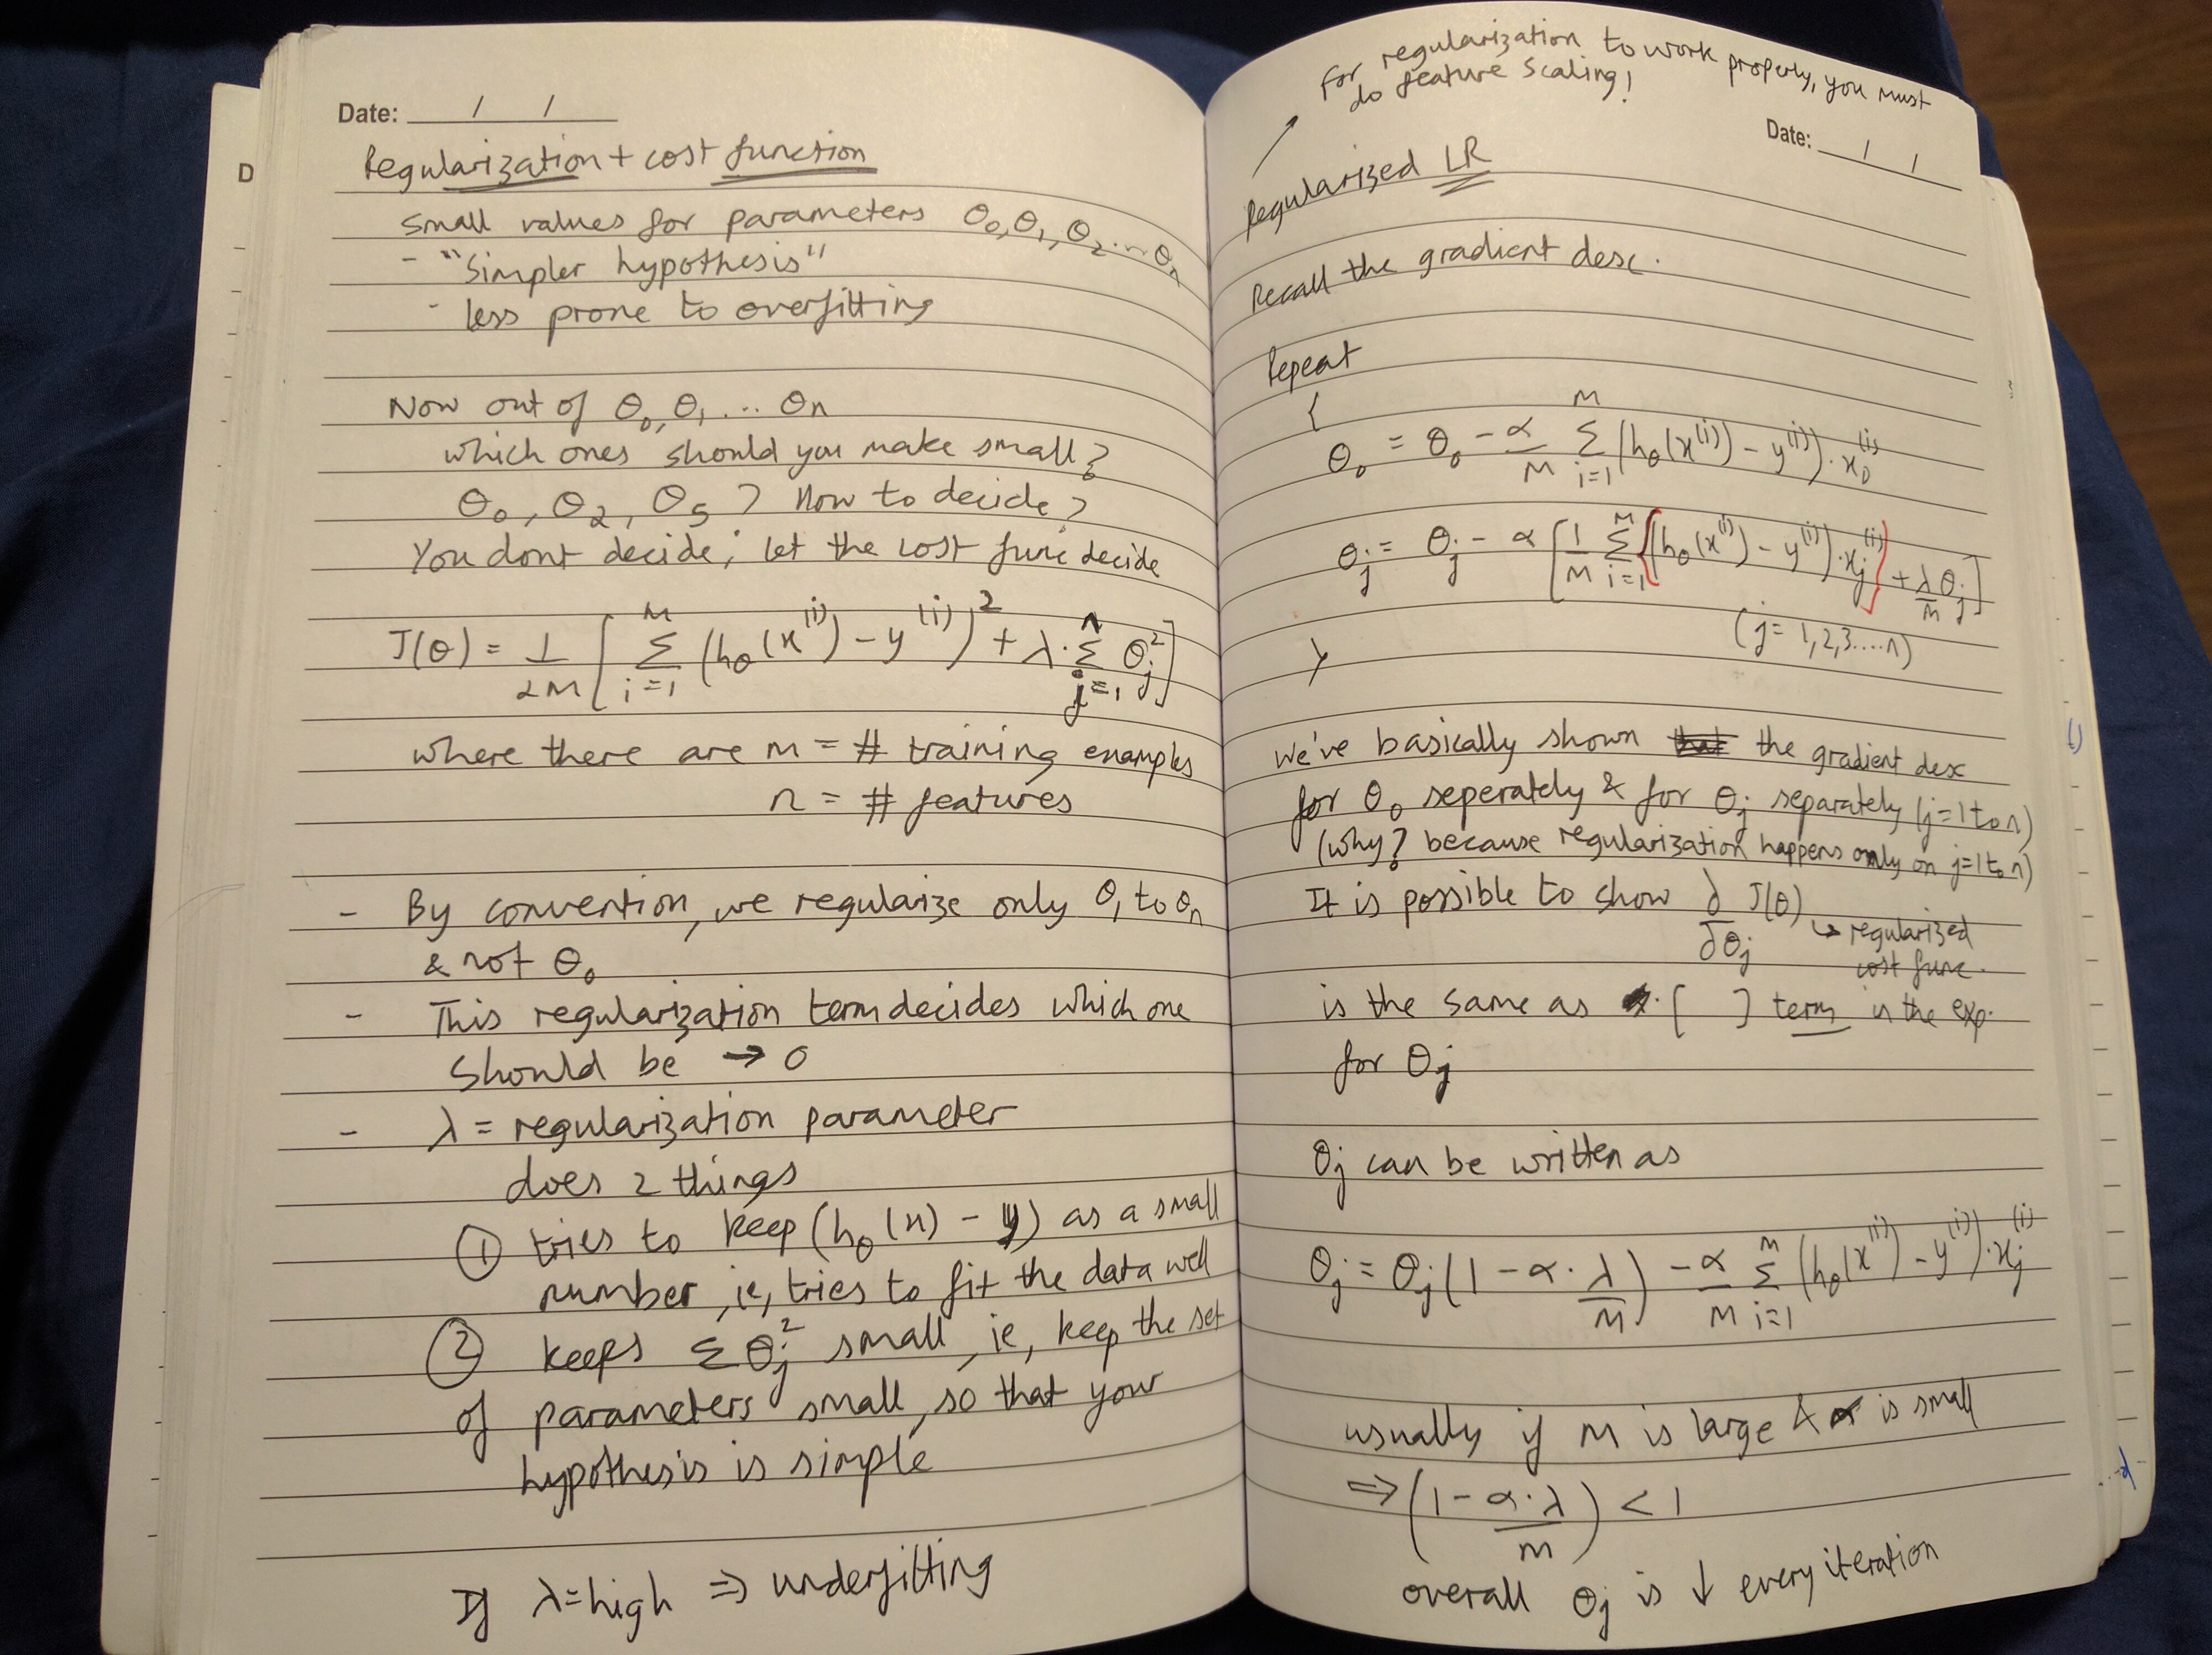 Date: / /
Regularization + cost function
small values for parameters θ₀, θ₁, θ₂ ... θn
- "simpler hypothesis"
- less prone to overfitting
Now out of θ₀, θ₁ ... θn
which ones should you make small?
θ₀, θ₂, θ₅ ? How to decide?
You dont decide; let the cost func decide
J(θ) = 1/2M [ M Σ i=1 (hθ(x⁽ⁱ⁾) - y⁽ⁱ⁾)² + λ · n Σ j=1 θj² ]
where there are m = # training examples
n = # features
- By convention, we regularize only θ₁ to θn
& not θ₀
- This regularization term decides which one
should be → 0
- λ = regularization parameter
does 2 things
① tries to keep (hθ(x) - y) as a small
number, ie, tries to fit the data well
② keeps Σ θj² small, ie, keep the set
of parameters small, so that your
hypothesis is simple
If λ = high ⇒ underfitting
For regularization to work properly, you must
do feature scaling!
Date: / /
Regularized LR
Recall the gradient desc.
Repeat
{
θ₀ = θ₀ - α/M M Σ i=1 (hθ(x⁽ⁱ⁾) - y⁽ⁱ⁾) · x₀⁽ⁱ⁾
θj = θj - α [ 1/M M Σ i=1 {(hθ(x⁽ⁱ⁾) - y⁽ⁱ⁾) · xj⁽ⁱ⁾} + λ/M θj ]
(j = 1,2,3....n)
}
We've basically shown the gradient desc
for θ₀ seperately & for θj separately (j=1 to n)
(why? because regularization happens only on j=1 to n)
It is possible to show ∂/∂θj J(θ)
↳ regularized
cost func.
is the same as [ ] term in the exp.
for θj
θj can be written as
θj = θj (1 - α · λ/M) - α/M M Σ i=1 (hθ(x⁽ⁱ⁾) - y⁽ⁱ⁾) · xj⁽ⁱ⁾
usually if M is large & α is small
⇒ (1 - α·λ/m) < 1
overall θj is ↓ every iteration